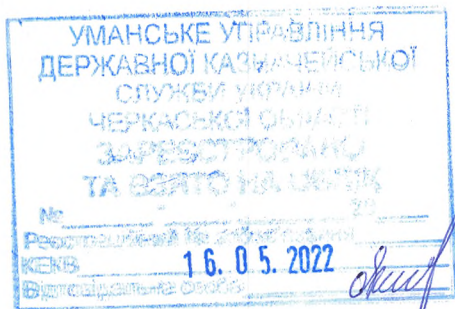 УМАНСЬКЕ УПРАВЛІННЯ
ДЕРЖАВНОЇ КАЗНАЧЕЙСЬКОЇ
СЛУЖБИ УКРАЇНИ
ЧЕРКАСЬКОЇ ОБЛАСТІ
ЗАРЕЄСТРОВАНО
ТА ВЗЯТО НА ОБЛІК
№ 20
Реєстраційний №
КЕКВ 16. 05. 2022
Відповідальна особа